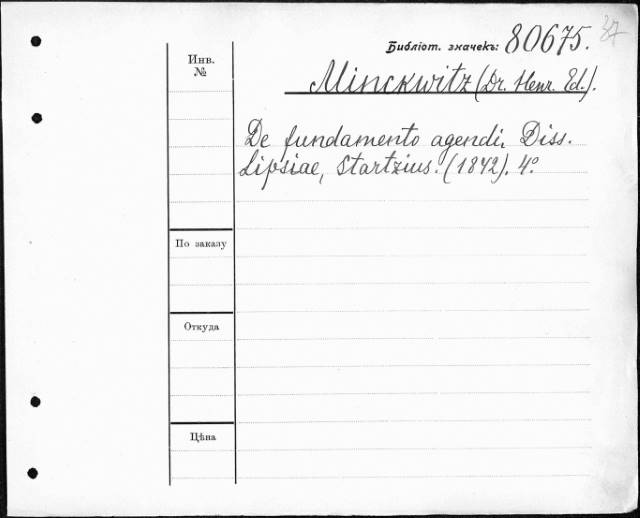 Библіот. значекъ: 80675. 37
Инв.
№
Minckwitz (Dr. Henr. Ed.).
De fundamento agendi, Diss.
Lipsiae, Startzius. (1842). 4°
По заказу
Откуда
Цѣна